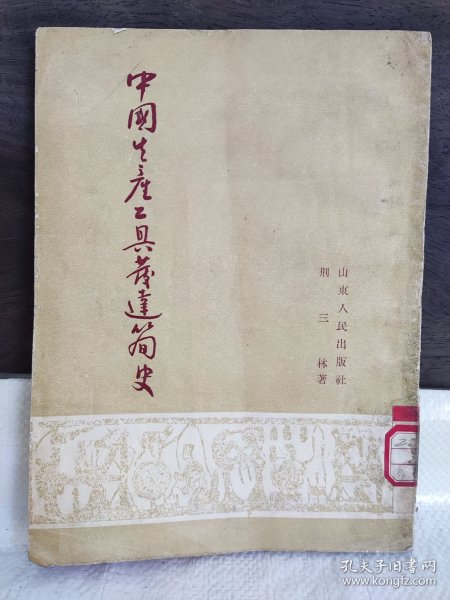 中國生產工具發達簡史
山東人民出版社
荆三林著
孔夫子旧书网
www.kongfz.com